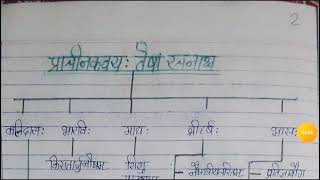 2
प्राचीनकवयः तेषां रचनाश्च
कालिदासः भारविः माघः श्रीहर्षः भासः
किरातार्जुनीयम् शिशु नैषधीयचरितम् प्रतिज्ञायौग